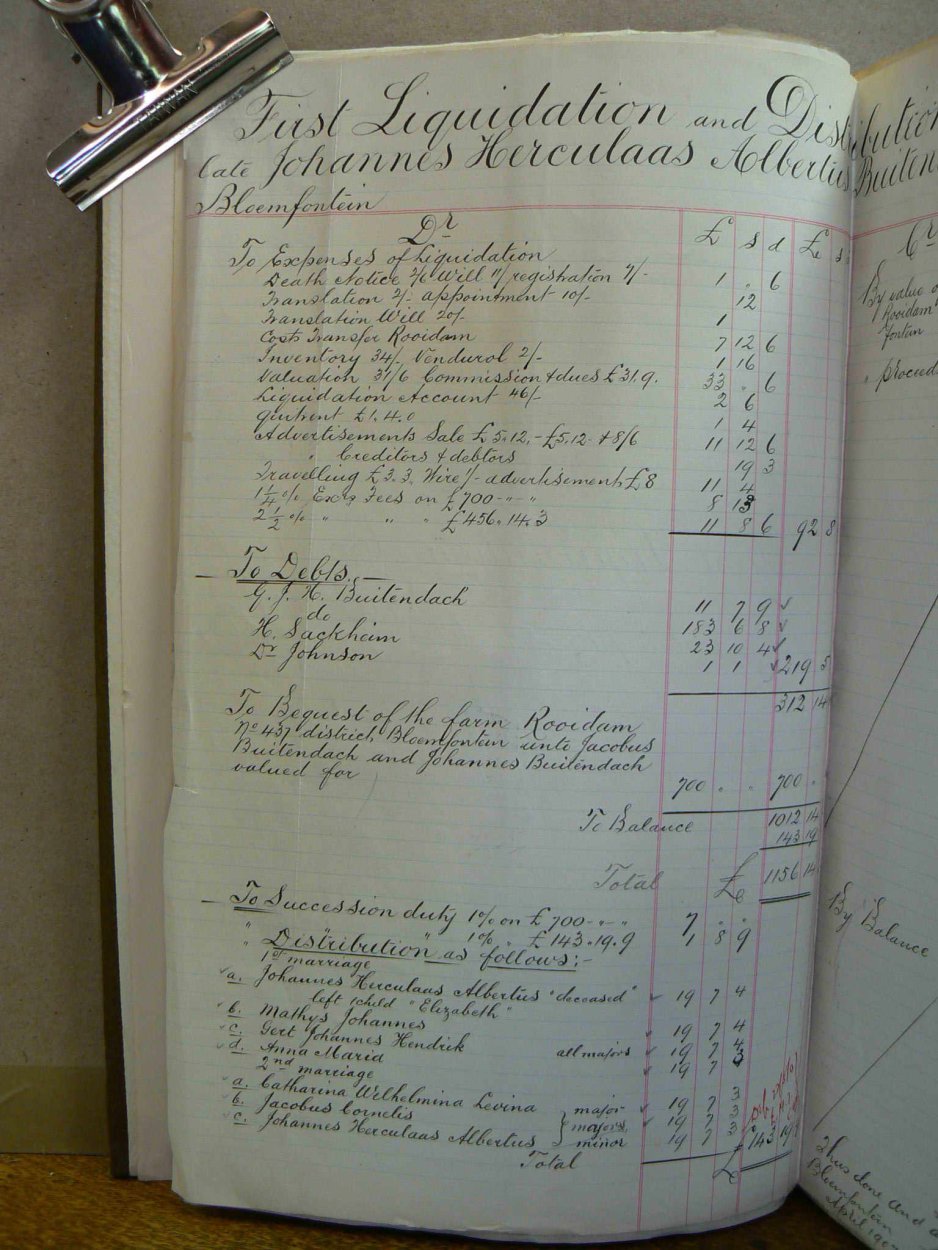 First Liquidation and Distribution
late Johannes Herculaas Albertus Buiten
Bloemfontein
Dr £ s d £ s
To Expenses of Liquidation
Death Notice 2/6 Will 11/ registration 7/- 1 " 6
Translation 2/- appointment 10/- 12
Translation Will 20/- 1
Costs Transfer Rooidam 7 12 6
Inventory 34/- Vendurol 2/- 1 16
Valuation 31/6 Commission & dues £31.9. 33 " 6
Liquidation Account 46/- 2 6
Quitrent £1.4.0 1 4
Advertisements Sale £5.12.- £5.12- & 8/6 11 12 6
" Creditors & debtors 19 3
Travelling £3.3. Wire 1/- advertisements £8 11 4
1¼ % Exrs Fees on £700-"-" 8 15
2½ % " " " £456.14.3 11 8 6 92 8
To Debts.
G. J. H. Buitendach 11 7 9 ✓
do 183 6 8 ✓
H. Sackheim 23 10 4 ✓
Dr Johnson 1 1 ✓ 219 5
312 14
To Bequest of the farm Rooidam
No 437 district Bloemfontein unto Jacobus
Buitendach and Johannes Buitendach
valued for 700 " " 700 "
1012 14
To Balance 143 19
Total £ 1156 14
To Succession duty 1% on £700-"-" 7 " "
" " 1% " £143.19.9 1 8 9
Distribution as follows:-
1st marriage
✓ a. Johannes Herculaas Albertus "deceased" ✓ 19 7 4
left child "Elizabeth"
✓ b. Mathys Johannes ✓ 19 7 4
✓ c. Gert Johannes Hendrik all majors ✓ 19 7 4
✓ d. Anna Maria ✓ 19 7 3
2nd marriage
✓ a. Catharina Wilhelmina Levina major ✓ 19 7 3
✓ b. Jacobus Cornelis majors, ✓ 19 7 3
✓ c. Johannes Herculaas Albertus minor 19 7 3 143 19
Total £
Cr
By value o
Rooidam
fontein
" proceed
By Balance
Thus done and
Bloemfontein
April 190